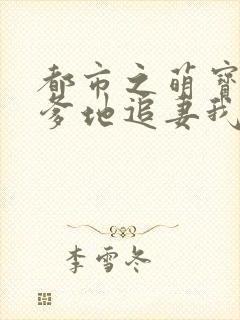 都市之萌宝
爹地追妻我
李雪冬